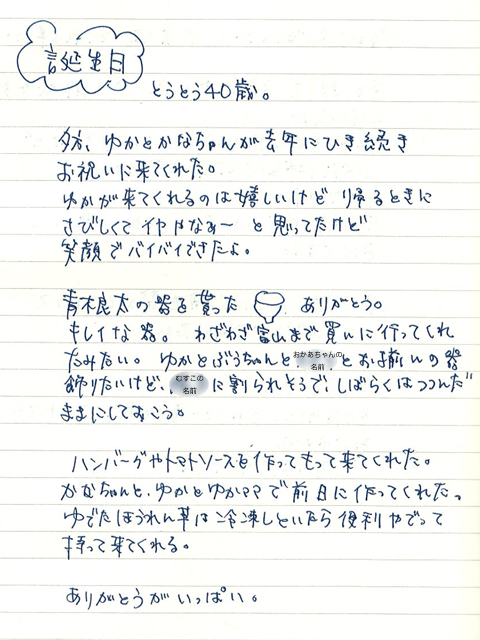 誕生日
とうとう40歳。
夕方、ゆかとかなちゃんが去年にひき続き
お祝いに来てくれた。
ゆかが来てくれるのは嬉しいけど 帰るときに
さびしくてイヤやなぁー と思ってたけど
笑顔でバイバイできたよ。
青木良太の器を貰った ありがとう。
キレイな器。 わざわざ富山まで買いに行ってくれ
たみたい。 ゆかとぶうちゃんと おかあちゃんの名前 とお揃いの器
飾りたいけど、 むすこの名前 に割られそうで、しばらくはつつんだ
ままにしておこう。
ハンバーグやトマトソースを作ってもって来てくれた。
かなちゃんと、ゆかとゆかママで前日に作ってくれた。
ゆでたほうれん草は冷凍しといたら便利やでって
持って来てくれる。
ありがとうがいっぱい。